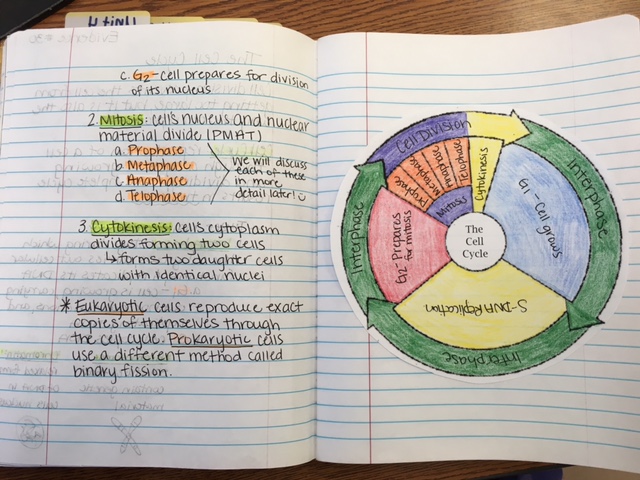 Unit 4
c. G2-Cell prepares for division
of its nucleus
2. Mitosis: cell's nucleus and nuclear
material divide (PMAT)
a. Prophase
b. Metaphase
c. Anaphase
d. Telophase
We will discuss
each of these
in more
detail later!
3. Cytokinesis: cells cytoplasm
divides forming two cells
↳ forms two daughter cells
with identical nuclei
* Eukaryotic cells reproduce exact
copies of themselves through
the cell cycle. Prokaryotic cells
use a different method called
binary fission.
Cell Division
Prophase
Metaphase
Anaphase
Telophase
Mitosis
Cytokinesis
Interphase
G1-Cell grows
The
Cell
Cycle
G2-Prepares
for mitosis
Interphase
S-DNA Replication
Interphase